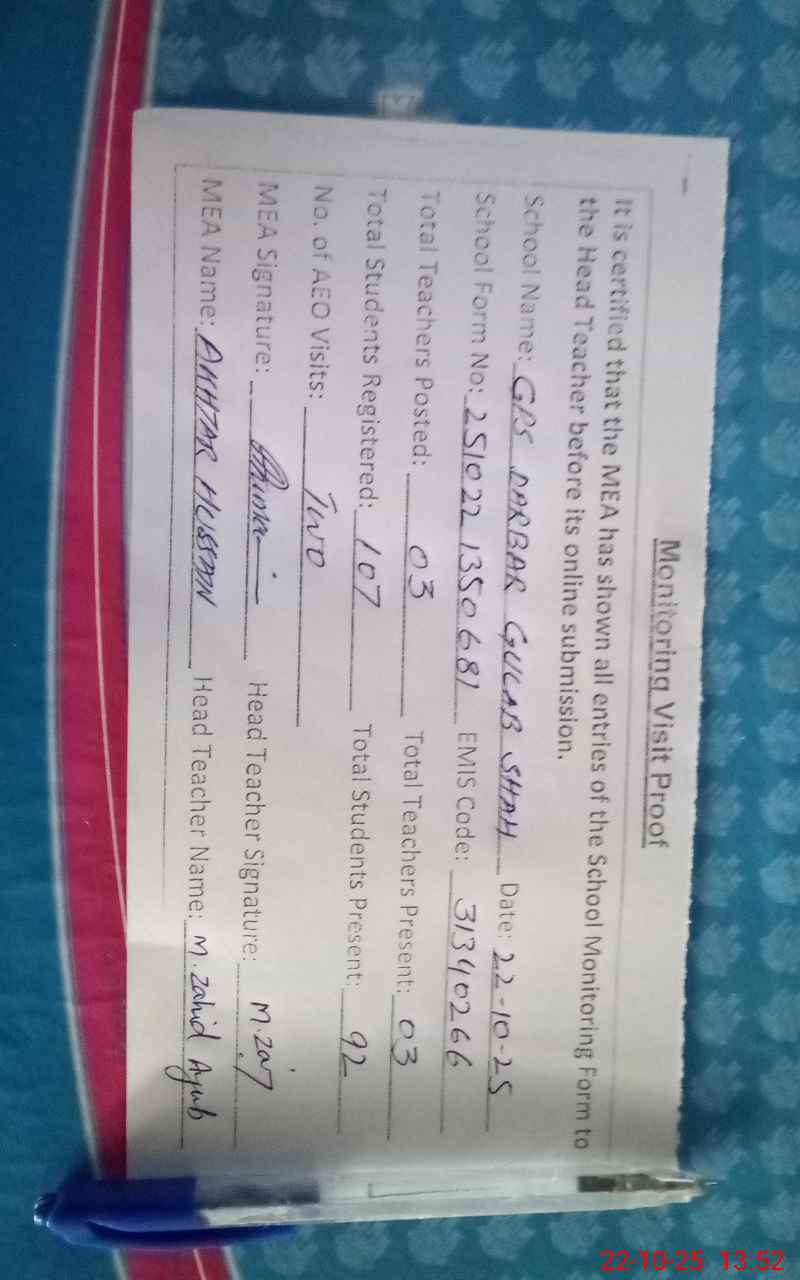 Monitoring Visit Proof
It is certified that the MEA has shown all entries of the School Monitoring Form to
the Head Teacher before its online submission.
School Name: GPS DARBAR GULAB SHAH Date: 22-10-25
School Form No: 251022 1350681 EMIS Code: 31340266
Total Teachers Posted: 03 Total Teachers Present: 03
Total Students Registered: 107 Total Students Present: 92
No. of AEO Visits: Two
MEA Signature: Head Teacher Signature:
MEA Name: AKHTAR HUSSAIN Head Teacher Name: M. Zahid Ayub
22-10-25 13:52